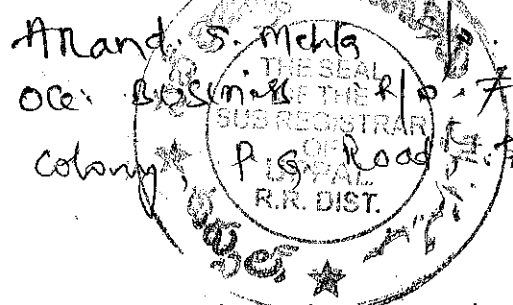 Anand. S. Mehta S/o.
Occ: Business R/o. 7
Colony, P.G. Road,
THE SEAL
OF THE
SUB REGISTRAR
OF
UPPAL
R.R. DIST.